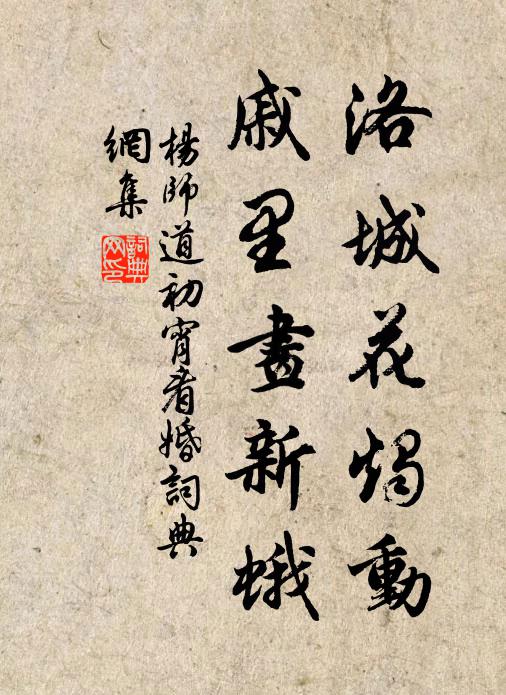 洛城花燭動
戚里畫新蛾
楊師道初宵看婚詞典
網集
詞典
网印